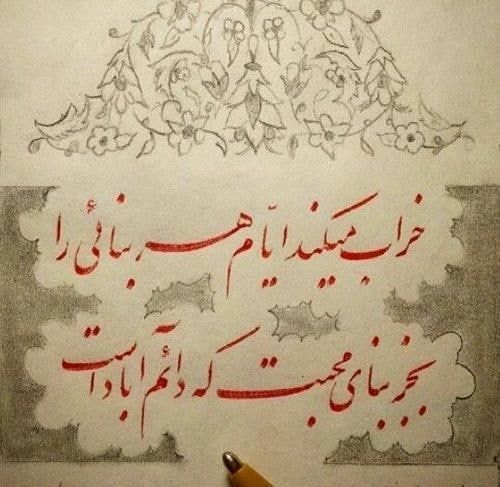 خراب میکند ایّام هر بنائی را
بجز بنای محبت که دائم آباد است